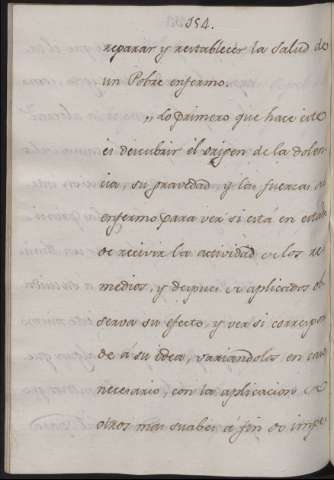 154.
reparar y restablecer la salud de
un Pobre enfermo.
„Lo primero que hace este
es descubrir el origen de la dolen
cia, su gravedad y las fuerzas
enfermo para ver si está en estado
de recivir la actividad de los re
medios, y despues de aplicados ob
serva su efecto, y ver si correspon
de á su idea, variandolas en caso
necesario, con la aplicacion de
otros mas suabes á fin de impe